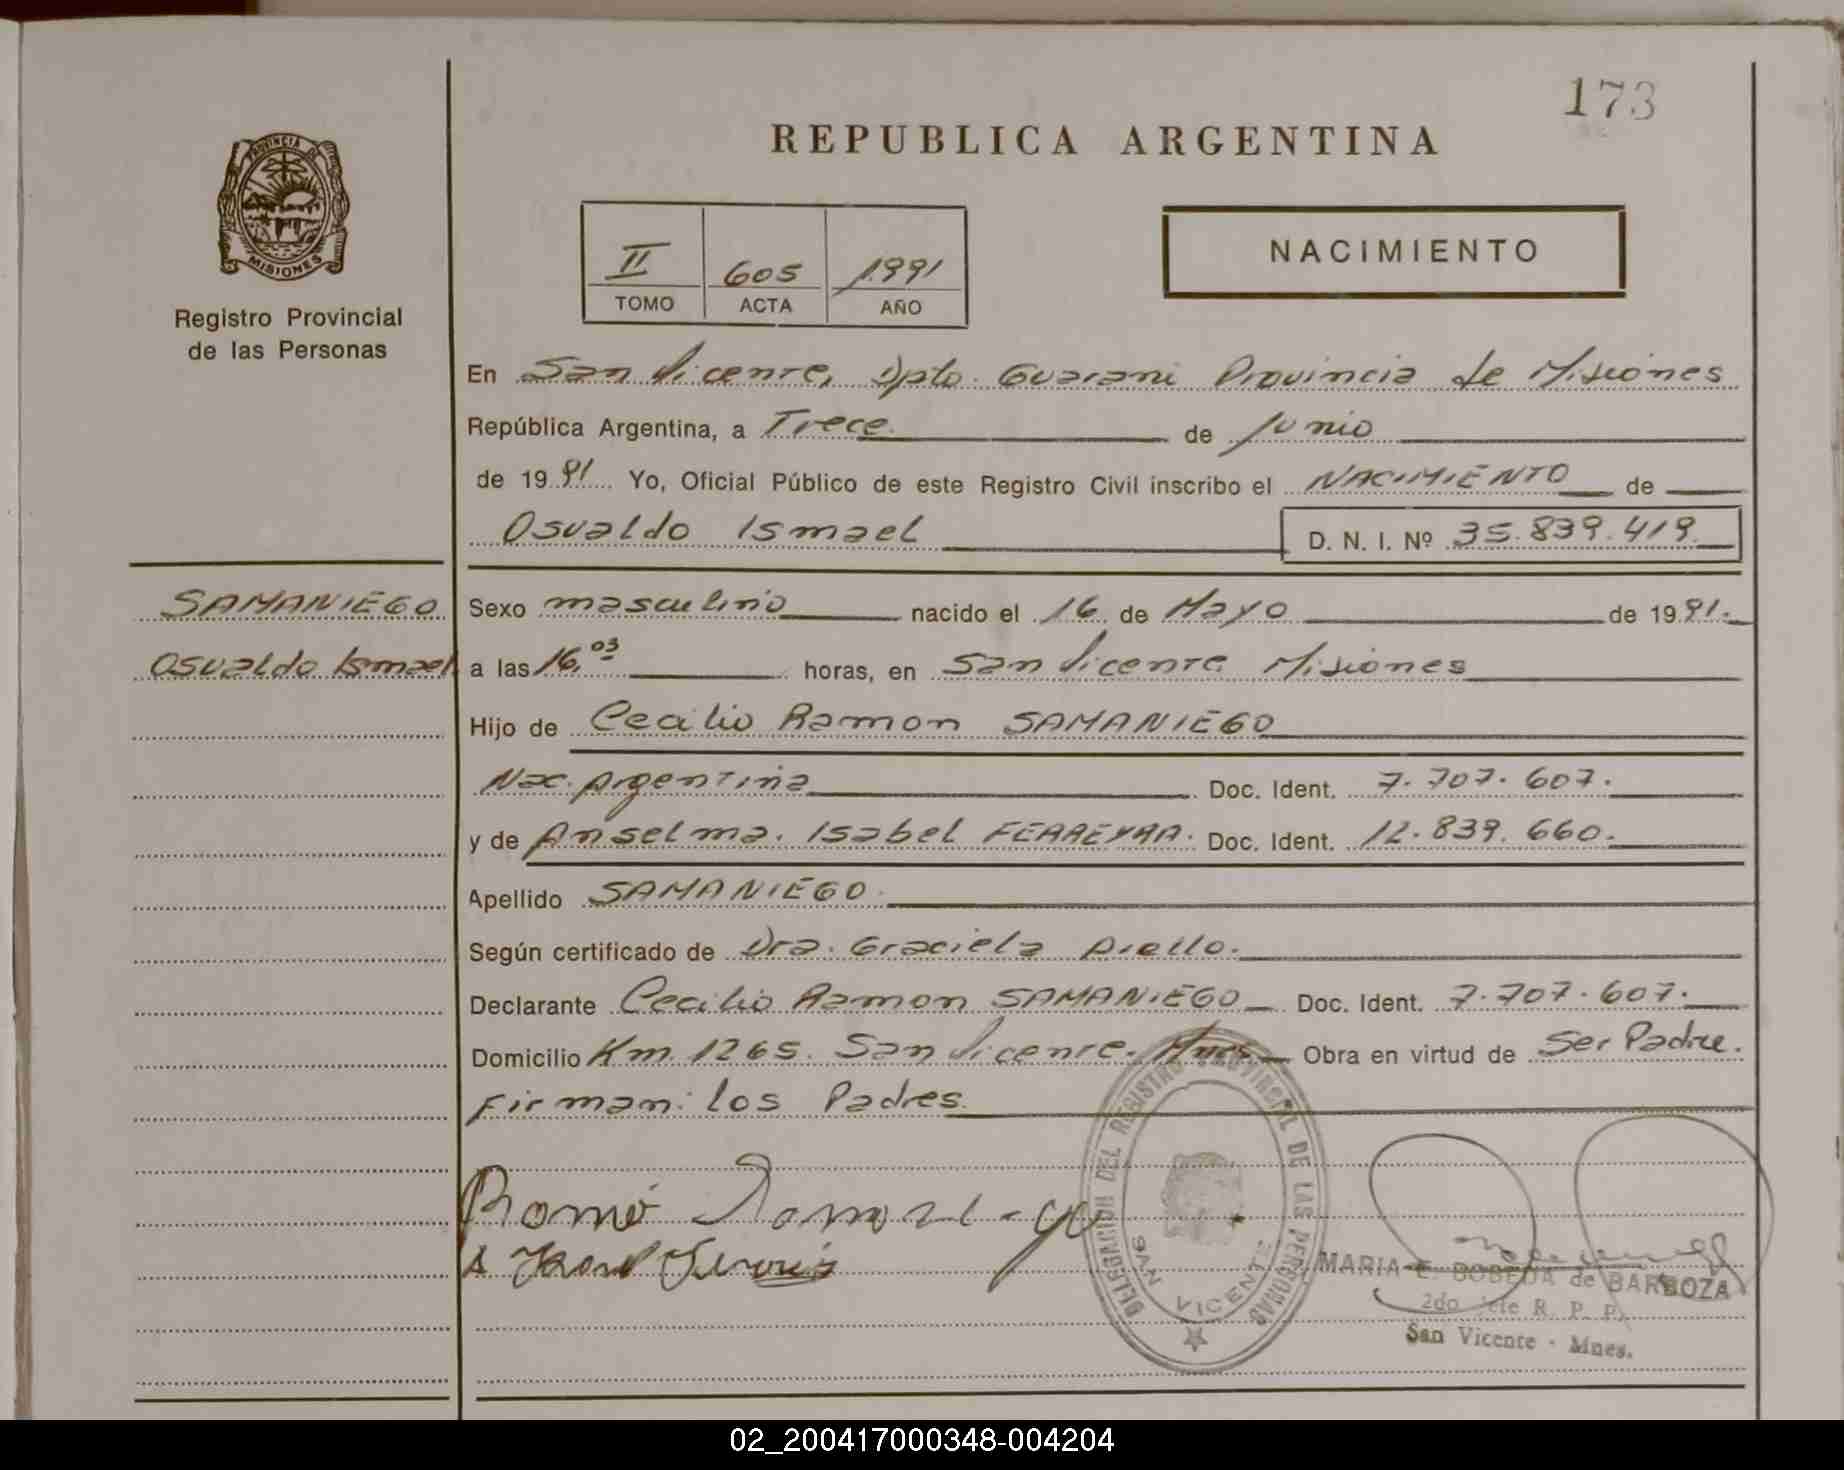 173
REPUBLICA ARGENTINA
PROVINCIA DE
MISIONES
Registro Provincial
de las Personas
II 605 1991
TOMO ACTA AÑO
NACIMIENTO
En San Vicente, Dpto. Guarani Provincia de Misiones
República Argentina, a Trece de Junio
de 1991 Yo, Oficial Público de este Registro Civil inscribo el NACIMIENTO de
Osvaldo Ismael D. N. I. Nº 35.839.419
SAMANIEGO
Osvaldo Ismael
Sexo masculino nacido el 16 de Mayo de 1991.
a las 16,03 horas, en San Vicente Misiones
Hijo de Cecilio Ramon SAMANIEGO
Nac. Argentina Doc. Ident. 7.707.607.
y de Anselma. Isabel FERREYRA. Doc. Ident. 12.839.660.
Apellido SAMANIEGO.
Según certificado de Dra. Graciela Aiello.
Declarante Cecilio Ramon SAMANIEGO Doc. Ident. 7.707.607.
Domicilio Km. 1265. San Vicente. Mnes Obra en virtud de Ser Padre.
Firman: los Padres.
DELEGACION DEL REGISTRO PROVINCIAL DE LAS PERSONAS
SAN VICENTE
MARIA E. BOBEDA de BARBOZA
2do Jefe R. P. P.
San Vicente - Mnes.
02_200417000348-004204